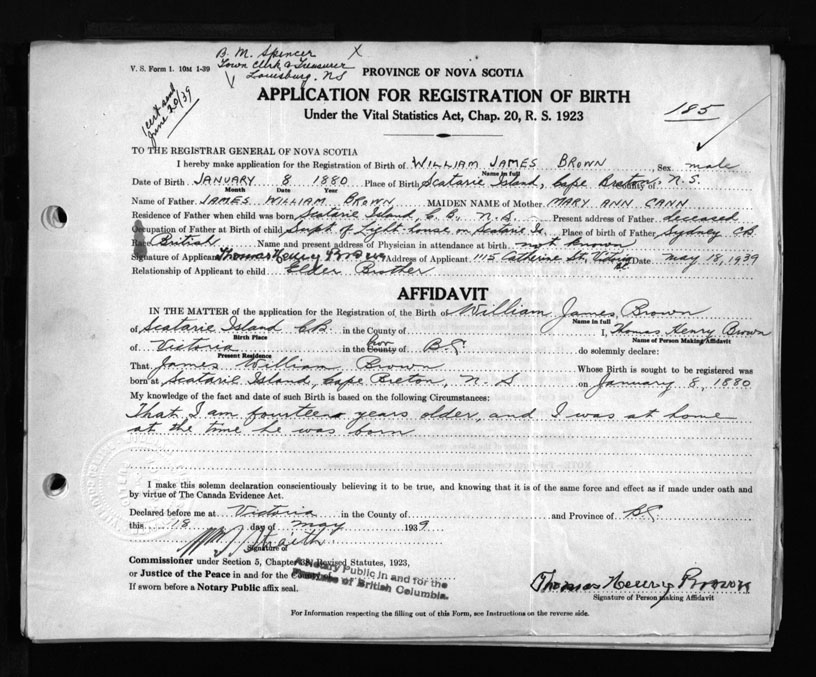 V. S. Form 1. 10M 1-39
B. M. Spencer
Town Clerk & Treasurer
Louisburg, NS
1 cert sent
June 20/39
PROVINCE OF NOVA SCOTIA
APPLICATION FOR REGISTRATION OF BIRTH
Under the Vital Statistics Act, Chap. 20, R. S. 1923
185
TO THE REGISTRAR GENERAL OF NOVA SCOTIA
I hereby make application for the Registration of Birth of WILLIAM JAMES BROWN, Sex male
Name in full
Date of Birth JANUARY 8 1880 Place of Birth Scatarie Island, Cape Breton, County of N.S.
Month Date Year
Name of Father JAMES WILLIAM BROWN MAIDEN NAME of Mother MARY ANN CANN
Residence of Father when child was born Scatarie Island, C.B., N.S. Present address of Father deceased
Occupation of Father at Birth of child Supt of Light-house on Scatarie Is. Place of birth of Father Sydney CB
Race British Name and present address of Physician in attendance at birth not known
Signature of Applicant Thomas Henry Brown Address of Applicant 1115 Catherine St., Victoria Date May 18, 1939
Relationship of Applicant to child Elder Brother
AFFIDAVIT
IN THE MATTER of the application for the Registration, of the Birth of William James Brown
Name in full
of Scatarie Island CB in the County of I, Thomas Henry Brown
Birth Place Name of Person Making Affidavit
of Victoria in the County of Prov B.C. do solemnly declare:
Present Residence
That James William Brown Whose Birth is sought to be registered was
born at Scatarie Island, Cape Breton, N.S on January 8, 1880
My knowledge of the fact and date of such Birth is based on the following Circumstances:
That I am fourteen years older, and I was at home
at the time he was born
I make this solemn declaration conscientiously believing it to be true, and knowing that it is of the same force and effect as if made under oath and
by virtue of The Canada Evidence Act.
Declared before me at Victoria in the County of and Province of B.C.
this 18 day of May 1939
Signature of
Commissioner under Section 5, Chapter 38, Revised Statutes, 1923,
or Justice of the Peace in and for the
A Notary Public in and for the
Province of British Columbia.
If sworn before a Notary Public affix seal.
Thomas Henry Brown
Signature of Person making Affidavit
For Information respecting the filling out of this Form, see Instructions on the reverse side.